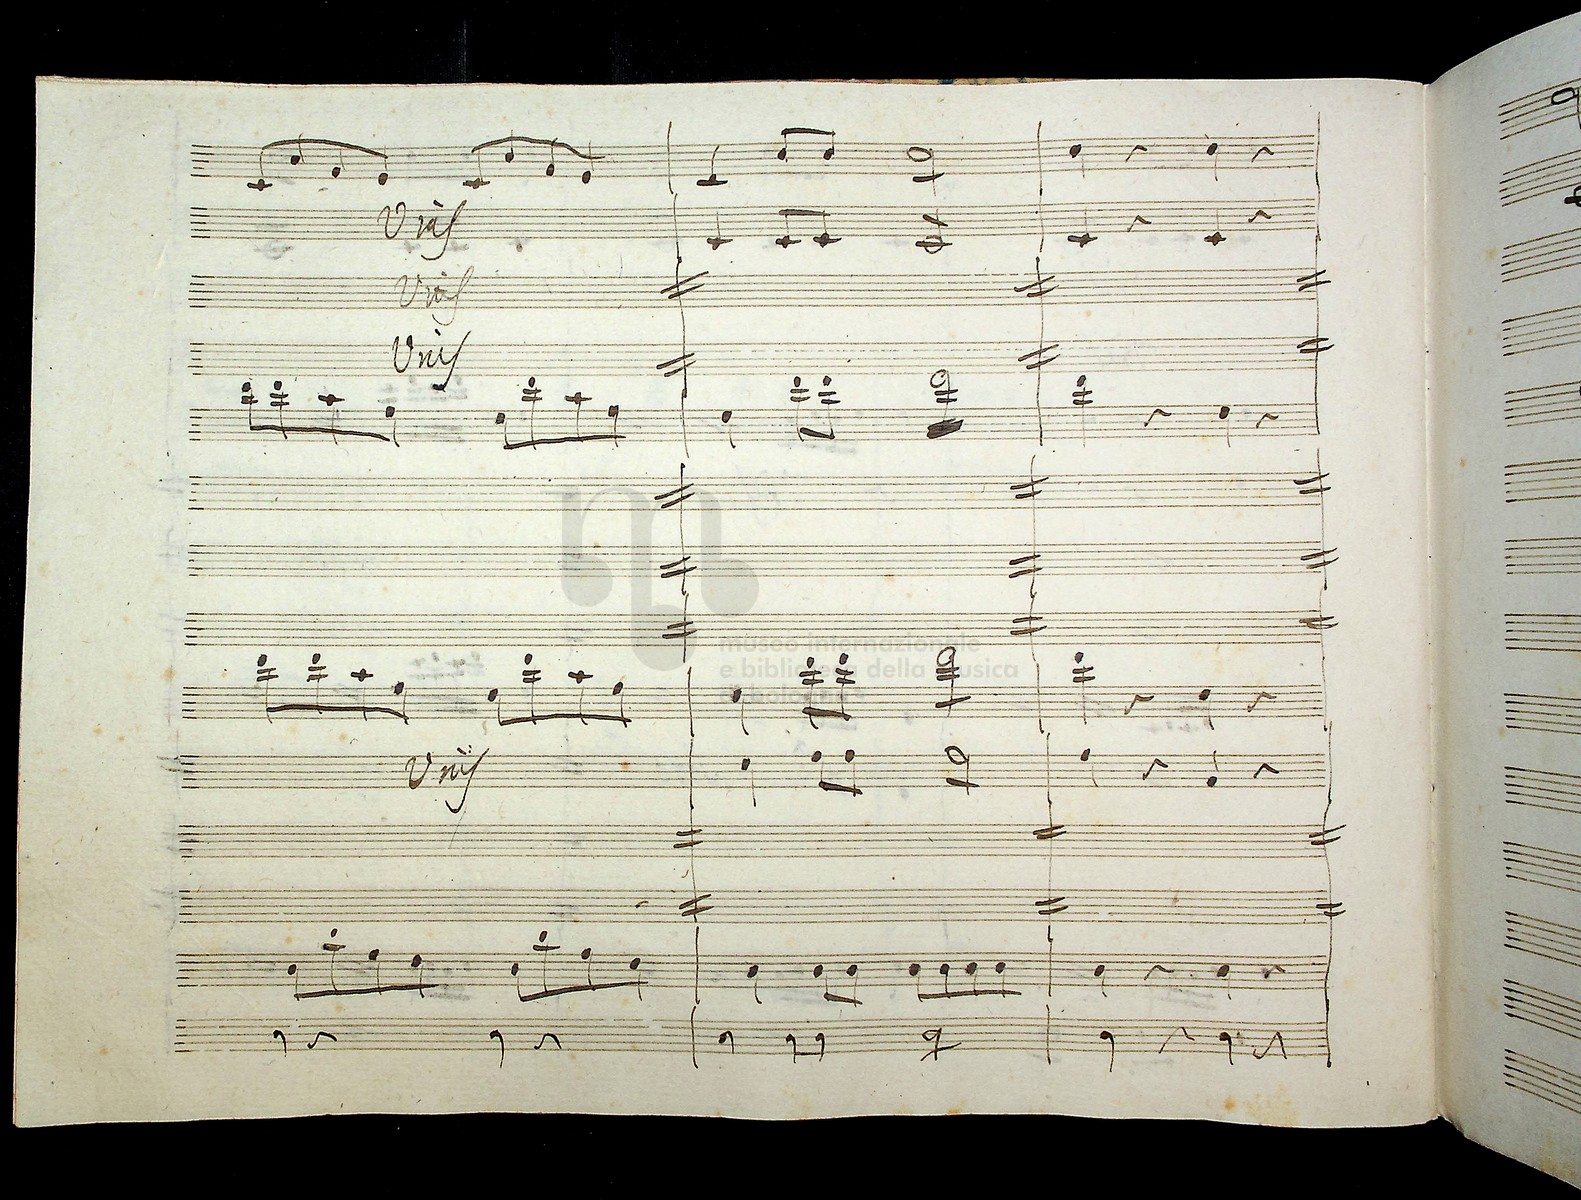 Unis
Unis
Unis
museo internazionale
e biblioteca della musica
di bologna
Unis